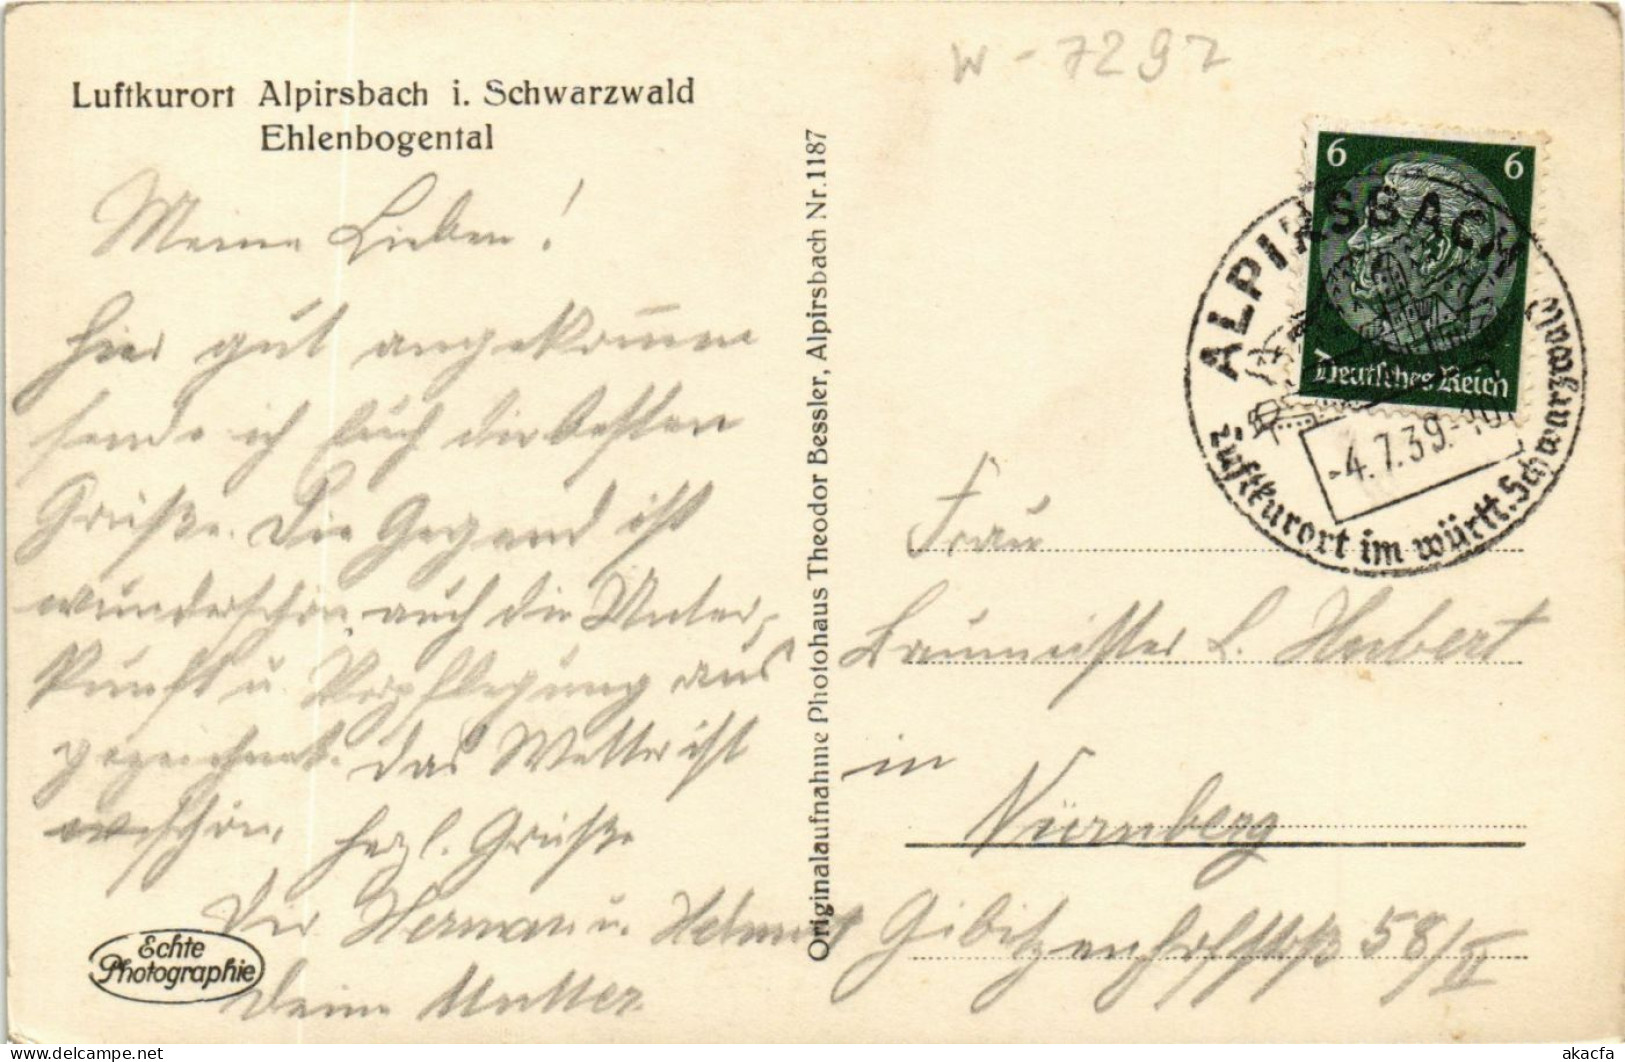 W-7297
Luftkurort Alpirsbach i. Schwarzwald
Ehlenbogental
Meine Lieben!
hier gut angekommen
sende ich Euch die besten
Grüße. Die Gegend ist
wunderschön, auch die Unter-
kunft u. Verpflegung aus
gezeichnet. Das Wetter ist
schön. Herzl. Grüße
Dir Herman u. Helmut
Deine Mutter
Echte
Photographie
Originalaufnahme Photohaus Theodor Bessler, Alpirsbach Nr. 1187
6 6
Deutsches Reich
ALPIRSBACH
-4.7.39.-10
Luftkurort im württ. Schwarzwald
Frau
Baumeister L. Hubert
in
Nürnberg
Gibitzenhofstr 58/II
delcampe.net
akacfa